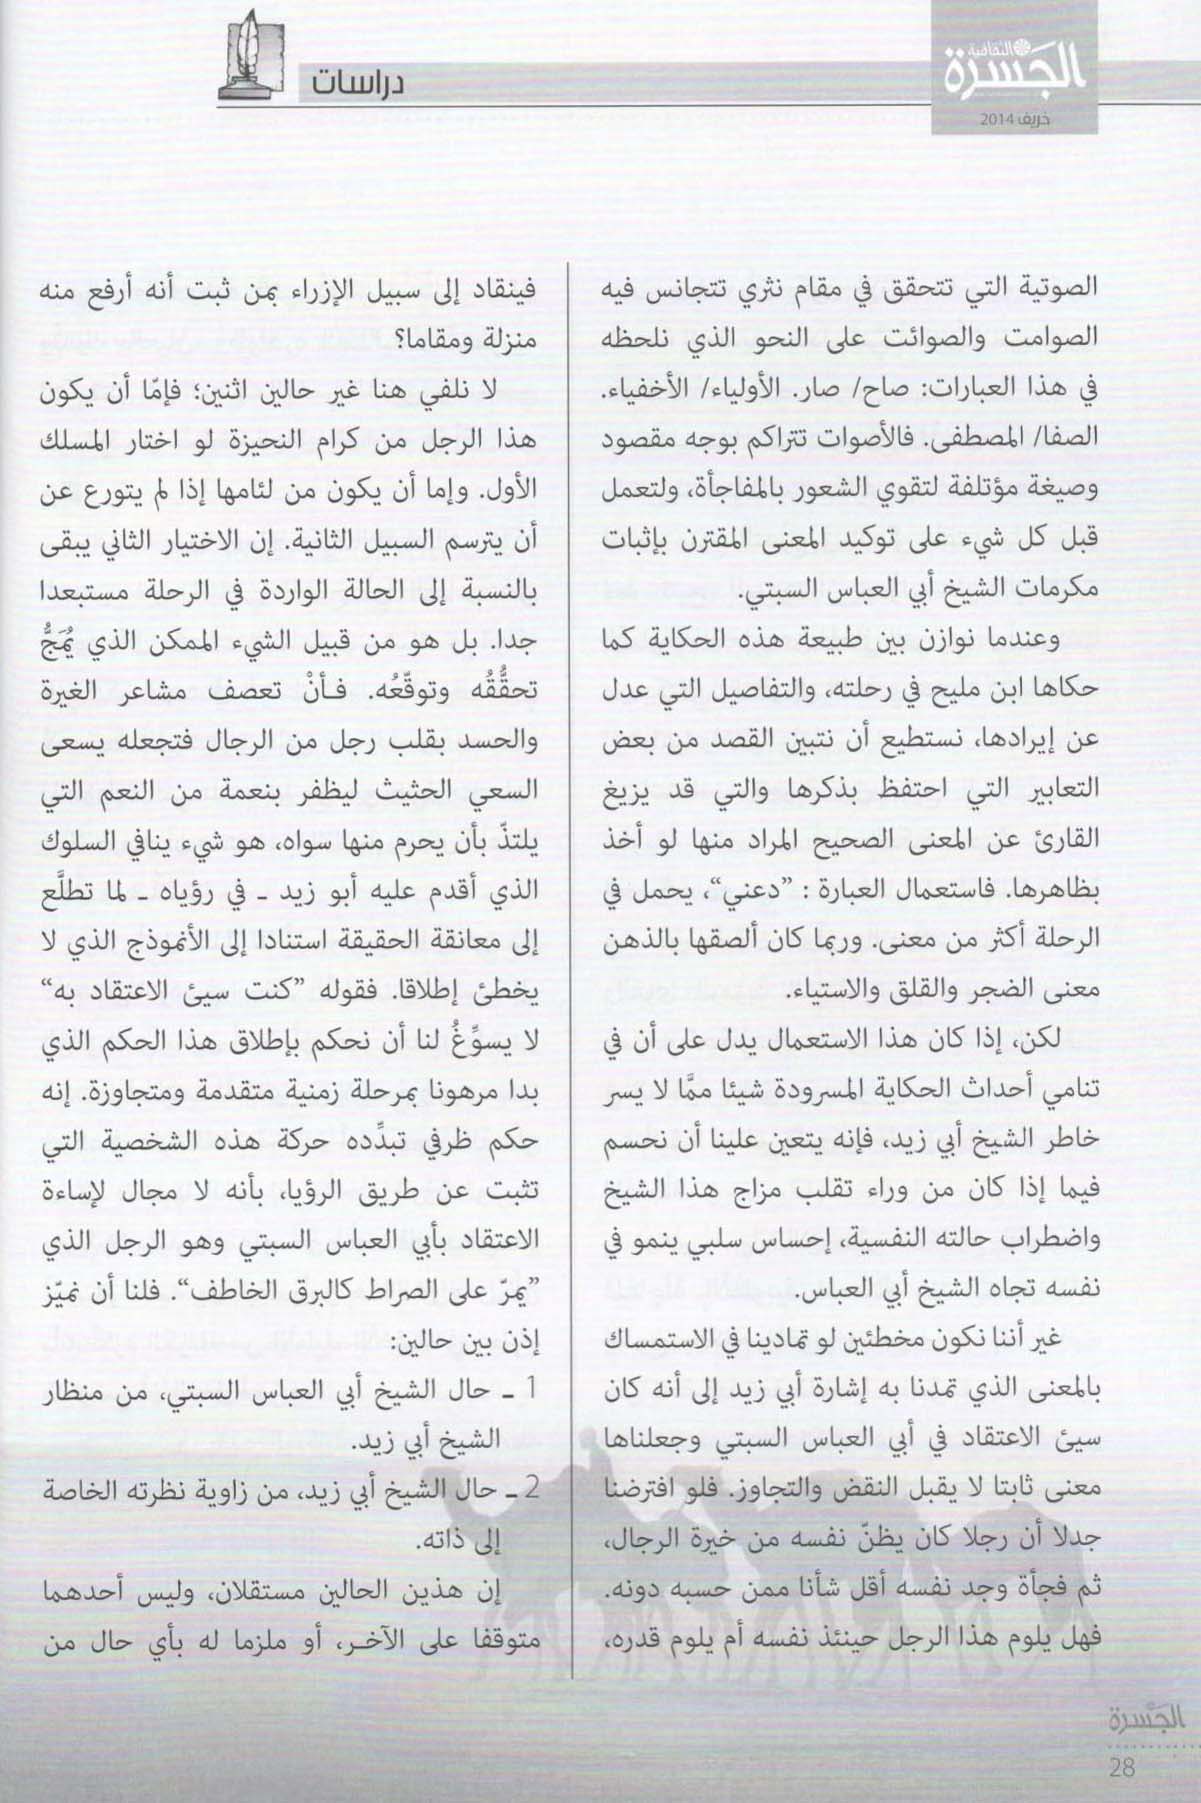 الجسرة الثقافية
خريف 2014
دراسات
الصوتية التي تتحقق في مقام نثري تتجانس فيه
الصوامت والصوائت على النحو الذي نلحظه
في هذا العبارات: صاح/ صار. الأولياء/ الأخفياء.
الصفا/ المصطفى. فالأصوات تتراكم بوجه مقصود
وصيغة مؤتلفة لتقوي الشعور بالمفاجأة، ولتعمل
قبل كل شيء على توكيد المعنى المقترن بإثبات
مكرمات الشيخ أبي العباس السبتي.
وعندما نوازن بين طبيعة هذه الحكاية كما
حكاها ابن مليح في رحلته، والتفاصيل التي عدل
عن إيرادها، نستطيع أن نتبين القصد من بعض
التعابير التي احتفظ بذكرها والتي قد يزيغ
القارئ عن المعنى الصحيح المراد منها لو أخذ
بظاهرها. فاستعمال العبارة : ”دعني“، يحمل في
الرحلة أكثر من معنى. وربما كان ألصقها بالذهن
معنى الضجر والقلق والاستياء.
لكن، إذا كان هذا الاستعمال يدل على أن في
تنامي أحداث الحكاية المسرودة شيئا ممَّا لا يسر
خاطر الشيخ أبي زيد، فإنه يتعين علينا أن نحسم
فيما إذا كان من وراء تقلب مزاج هذا الشيخ
واضطراب حالته النفسية، إحساس سلبي ينمو في
نفسه تجاه الشيخ أبي العباس.
غير أننا نكون مخطئين لو تمادينا في الاستمساك
بالمعنى الذي تمدنا به إشارة أبي زيد إلى أنه كان
سيئ الاعتقاد في أبي العباس السبتي وجعلناها
معنى ثابتا لا يقبل النقض والتجاوز. فلو افترضنا
جدلا أن رجلا كان يظنّ نفسه من خيرة الرجال،
ثم فجأة وجد نفسه أقل شأنا ممن حسبه دونه.
فهل يلوم هذا الرجل حينئذ نفسه أم يلوم قدره،
فينقاد إلى سبيل الإزراء بمن ثبت أنه أرفع منه
منزلة ومقاما؟
لا نلفي هنا غير حالين اثنين؛ فإمّا أن يكون
هذا الرجل من كرام النحيزة لو اختار المسلك
الأول. وإما أن يكون من لئامها إذا لم يتورع عن
أن يترسم السبيل الثانية. إن الاختيار الثاني يبقى
بالنسبة إلى الحالة الواردة في الرحلة مستبعدا
جدا. بل هو من قبيل الشيء الممكن الذي يُمَجُّ
تحقُّقُه وتوقّعُه. فـأنْ تعصف مشاعر الغيرة
والحسد بقلب رجل من الرجال فتجعله يسعى
السعي الحثيث ليظفر بنعمة من النعم التي
يلتذّ بأن يحرم منها سواه، هو شيء ينافي السلوك
الذي أقدم عليه أبو زيد ـ في رؤياه ـ لما تطلَّع
إلى معانقة الحقيقة استنادا إلى الأنموذج الذي لا
يخطئ إطلاقا. فقوله ”كنت سيئ الاعتقاد به“
لا يسوِّغُ لنا أن نحكم بإطلاق هذا الحكم الذي
بدا مرهونا بمرحلة زمنية متقدمة ومتجاوزة. إنه
حكم ظرفي تبدِّده حركة هذه الشخصية التي
تثبت عن طريق الرؤيا، بأنه لا مجال لإساءة
الاعتقاد بأبي العباس السبتي وهو الرجل الذي
”يمرّ على الصراط كالبرق الخاطف“. فلنا أن نميّز
إذن بين حالين:
1 ـ حال الشيخ أبي العباس السبتي، من منظار
الشيخ أبي زيد.
2 ـ حال الشيخ أبي زيد، من زاوية نظرته الخاصة
إلى ذاته.
إن هذين الحالين مستقلان، وليس أحدهما
متوقفا على الآخـر، أو ملزما له بأي حال من
الجَسرة
28